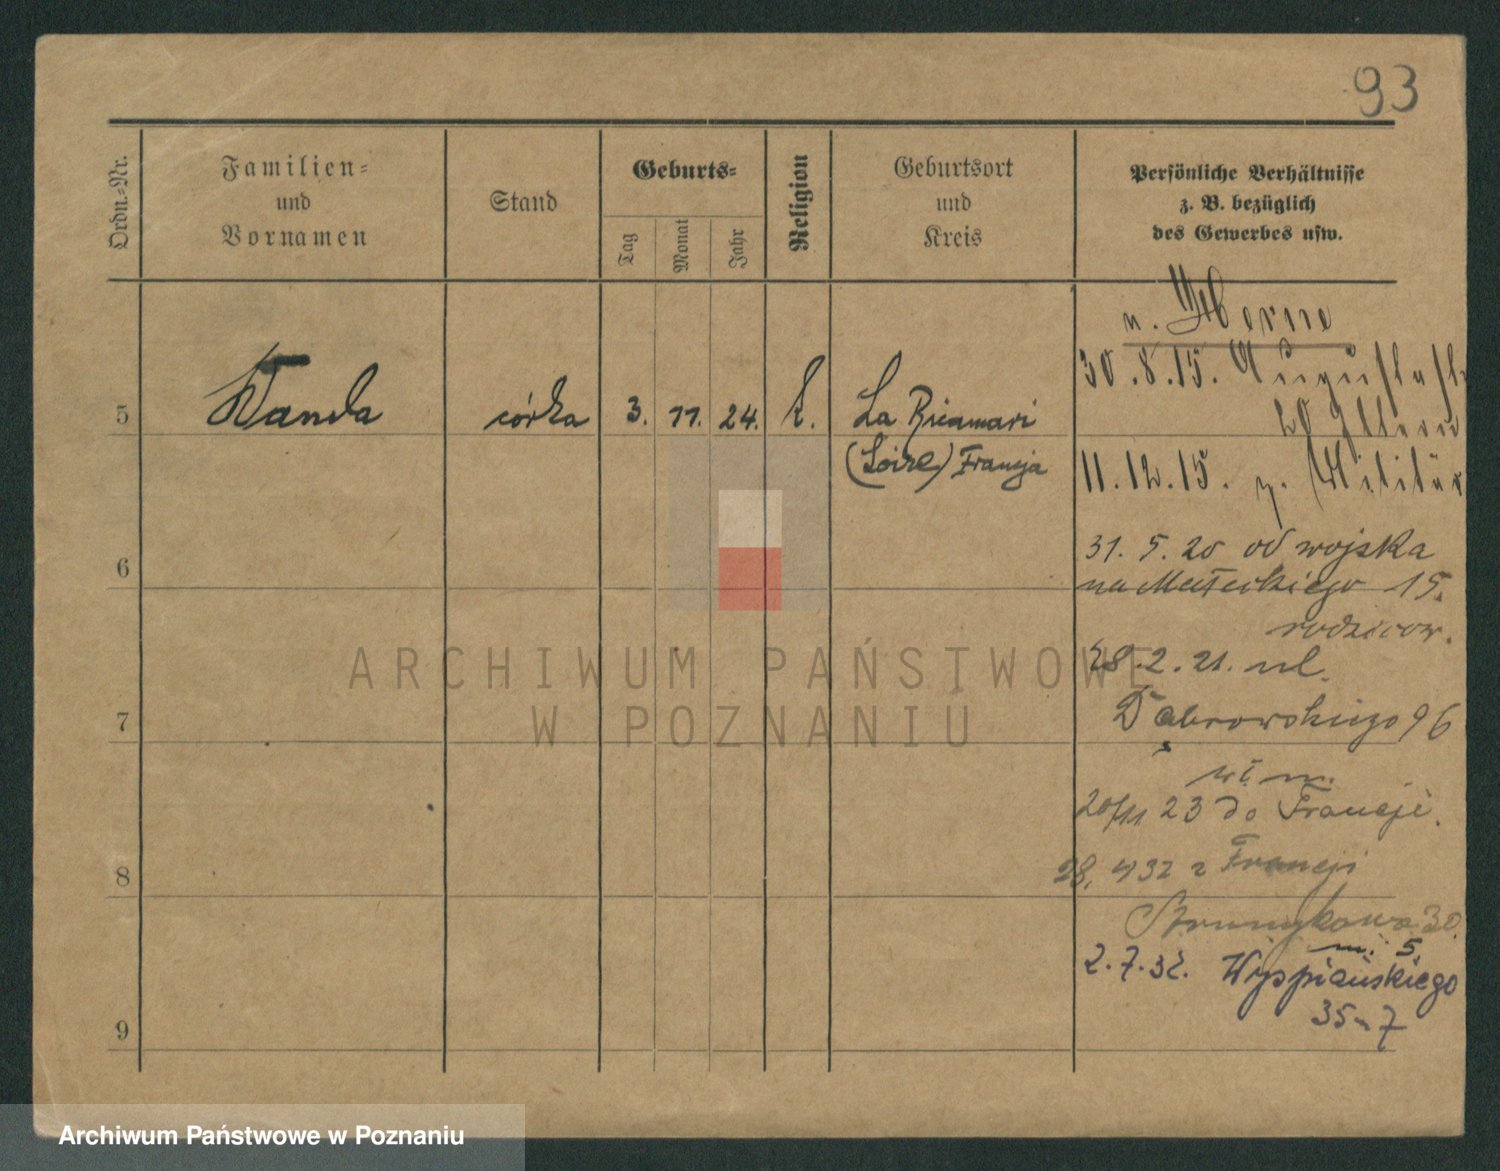 93
Ordn.-Nr.
Familien-
und
Vornamen
Stand
Geburts-
Tag
Monat
Jahr
Religion
Geburtsort
und
Kreis
Persönliche Verhältnisse
z. B. bezüglich
des Gewerbes usw.
n. Herne
30.8.15.
5 Wanda córka 3. 11. 24. k. La Ricamari
(Loire) Francja
11.12.15. z. Militär
31. 5. 20 od wojska
6
na Małeckiego 15.
rodziców.
28.2.21. ul.
7
Dąbrowskiego 96
wł. m.
20/11 23 do Francji.
8
28. 4 32 z Francji
30.
m. 5
2.7.32. Wyspiańskiego
35-7
9
ARCHIWUM PAŃSTWOWE
W POZNANIU
Archiwum Państwowe w Poznaniu